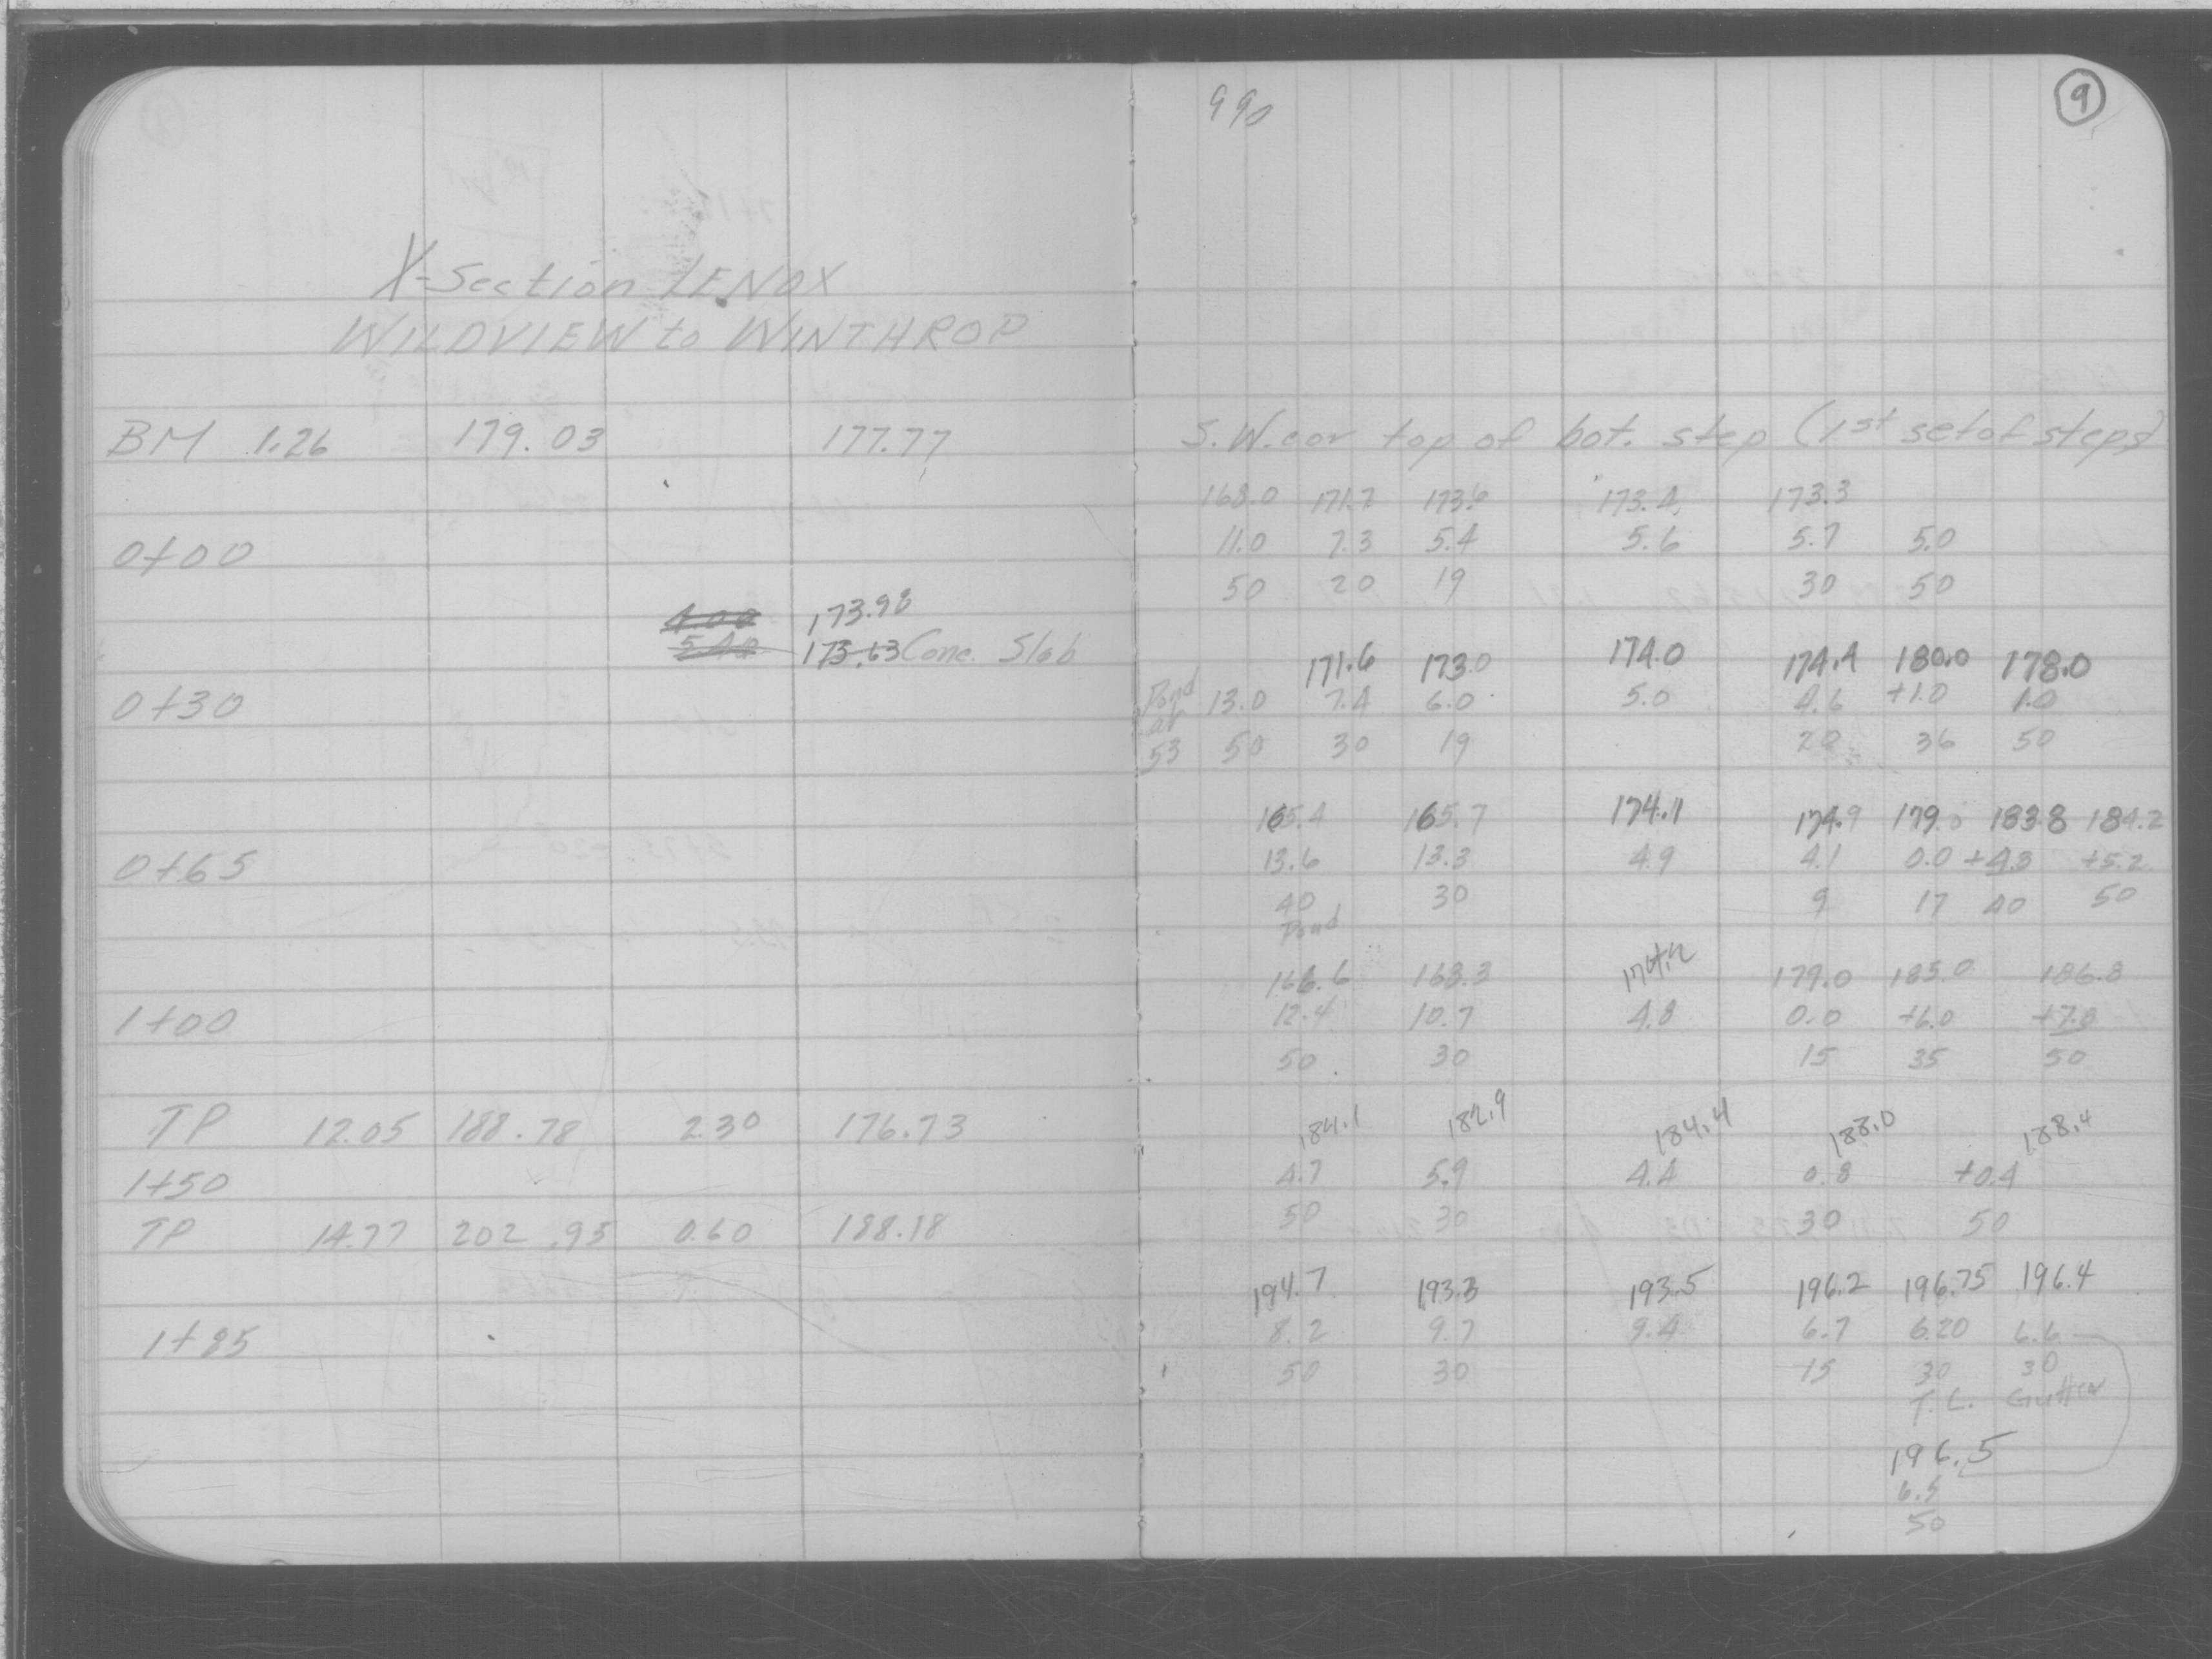 990
9
X-Section LENOX
WILDVIEW to WINTHROP
BM 1.26 179.03 177.77 S.W. cor top of bot. step (1st set of steps)
168.0 171.7 173.6 173.4 173.3
0+00 11.0 7.3 5.4 5.6 5.7 5.0
50 20 19 30 50
4.00 173.98
173.63 Conc. Slab
171.6 173.0 174.0 174.4 180.0 178.0
0+30 Pond 13.0 7.4 6.0 5.0 4.6 +1.0 1.0
at
53 50 30 19 20 36 50
165.4 165.7 174.1 174.9 179.0 183.8 184.2
0+65 13.6 13.3 4.9 4.1 0.0 +4.8 +5.2
40 30 9 17 40 50
Pond
166.6 168.3 174.2 179.0 185.0 186.8
1+00 12.4 10.7 4.8 0.0 +6.0 +7.8
50 30 15 35 50
TP 12.05 188.78 2.30 176.73 184.1 182.9 184.4 188.0 188.4
1+50 4.7 5.9 4.4 0.8 +0.4
50 30 30 50
TP 14.77 202.95 0.60 188.18
194.7 193.3 193.5 196.2 196.75 196.4
1+85 8.2 9.7 9.4 6.7 6.20 6.6
50 30 15 30 30
T.C. Gutter
196.5
6.5
50